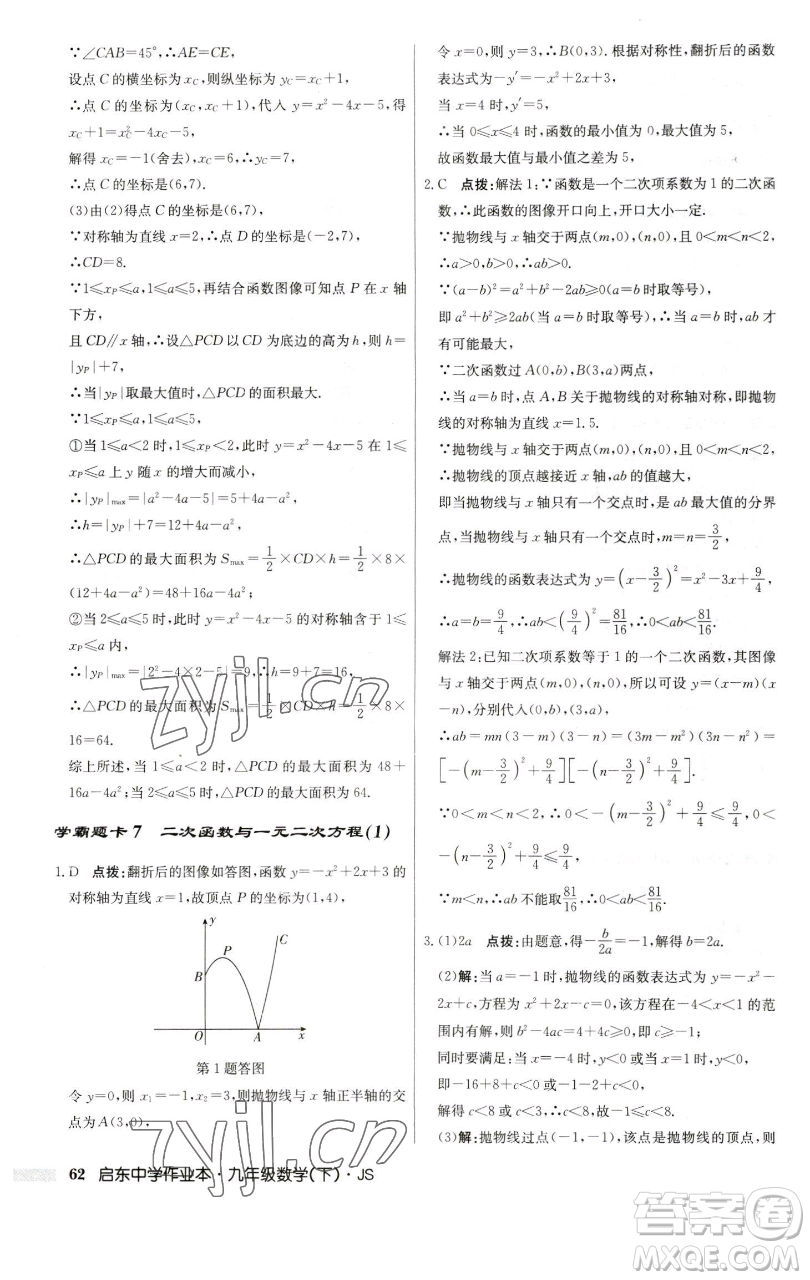 ∵∠CAB=45°,∴AE=CE,
设点 C 的横坐标为 x_C,则纵坐标为 y_C=x_C+1,
∴点 C 的坐标为(x_C,x_C+1),代入 y=x²-4x-5,得
x_C+1=x_C²-4x_C-5,
解得 x_C=-1(舍去),x_C=6,∴y_C=7,
∴点 C 的坐标为(6,7).
(3)由(2)得点 C 的坐标为(6,7),
∵对称轴为直线 x=2,∴点 D 的坐标为(-2,7),
∴CD=8.
∵1≤x_P≤a,1≤a≤5,再结合函数图像可知点 P 在 x 轴
下方,
且 CD∥x 轴,∴设△PCD 以 CD 为底边的高为 h,则 h=
|y_P|+7,
∴当|y_P|取最大值时,△PCD 的面积最大.
∵1≤x_P≤a,1≤a≤5,
①当 1≤a<2 时,1≤x_P<2,此时 y=x²-4x-5 在 1≤
x_P≤a 上 y 随 x 的增大而减小,
∴|y_P|max=|a²-4a-5|=5+4a-a²,
∴h=|y_P|+7=12+4a-a²,
∴△PCD 的最大面积为 Smax=1/2×CD×h=1/2×8×
(12+4a-a²)=48+16a-4a²;
②当 2≤a≤5 时,此时 y=x²-4x-5 的对称轴含于 1≤
x_P≤a 内,
∴|y_P|max=|2²-4×2-5|=9,∴h=9+7=16,
∴△PCD 的最大面积为 Smax=1/2×CD×h=1/2×8×
16=64.
综上所述,当 1≤a<2 时,△PCD 的最大面积为 48+
16a-4a²;当 2≤a≤5 时,△PCD 的最大面积为 64.
学霸题卡 7 二次函数与一元二次方程(1)
1. D 点拨:翻折后的图像如答图,函数 y=-x²+2x+3 的
对称轴为直线 x=1,故顶点 P 的坐标为(1,4),
y
C
P
B
O A x
第 1 题答图
令 y=0,则 x₁=-1,x₂=3,则抛物线与 x 轴正半轴的交
点为 A(3,0),
令 x=0,则 y=3,∴B(0,3). 根据对称性,翻折后的函数
表达式为-y′=-x²+2x+3,
当 x=4 时,y′=5,
∴当 0≤x≤4 时,函数的最小值为 0,最大值为 5,
故函数最大值与最小值之差为 5,
2. C 点拨:解法 1:∵函数是一个二次项系数为 1 的二次函
数,∴此函数的图像开口向上,开口大小一定.
∵抛物线与 x 轴交于两点(m,0),(n,0),且 0<m<n<2,
∴a>0,b>0,∴ab>0.
∵(a-b)²=a²+b²-2ab≥0(a=b 时取等号),
即 a²+b²≥2ab(当 a=b 时取等号),∴当 a=b 时,ab 才
有可能最大,
∵二次函数过 A(0,b),B(3,a)两点,
∴当 a=b 时,点 A,B 关于抛物线的对称轴对称,即抛物
线的对称轴为直线 x=1.5.
∵抛物线与 x 轴交于两点(m,0),(n,0),且 0<m<n<2,
∴抛物线的顶点越接近 x 轴,ab 的值越大,
即当抛物线与 x 轴只有一个交点时,是 ab 最大值的分界
点,当抛物线与 x 轴只有一个交点时,m=n=3/2,
∴抛物线的函数表达式为 y=(x-3/2)²=x²-3x+9/4,
∴a=b=9/4,∴ab<(9/4)²=81/16,∴0<ab<81/16.
解法 2:已知二次项系数等于 1 的一个二次函数,其图像
与 x 轴交于两点(m,0),(n,0),所以可设 y=(x-m)(x
-n),分别代入(0,b),(3,a),
∴ab=mn(3-m)(3-n)=(3m-m²)(3n-n²)=
[-(m-3/2)²+9/4][-(n-3/2)²+9/4].
∵0<m<n<2,∴0<-(m-3/2)²+9/4≤9/4,0<
-(n-3/2)²+9/4≤9/4,
∵m<n,∴ab 不能取81/16,∴0<ab<81/16.
3. (1)2a 点拨:由题意,得-b/2a=-1,解得 b=2a.
(2)解:当 a=-1 时,抛物线的函数表达式为 y=-x²-
2x+c,方程为 x²+2x-c=0,该方程在-4<x<1 的范
围内有解,则 b²-4ac=4+4c≥0,即 c≥-1;
同时要满足:当 x=-4 时,y<0,当 x=1 时,y<0,
即-16+8+c<0 或-1-2+c<0,
解得 c<8 或 c<3,故 c 的取值范围为-1≤c<8.
(3)解:抛物线过点(-1,-1),是抛物线的顶点,则
62 启东中学作业本·九年级数学(下)·JS
zyjl.cn
zyjl.cn
答案圈
MXQE.COM